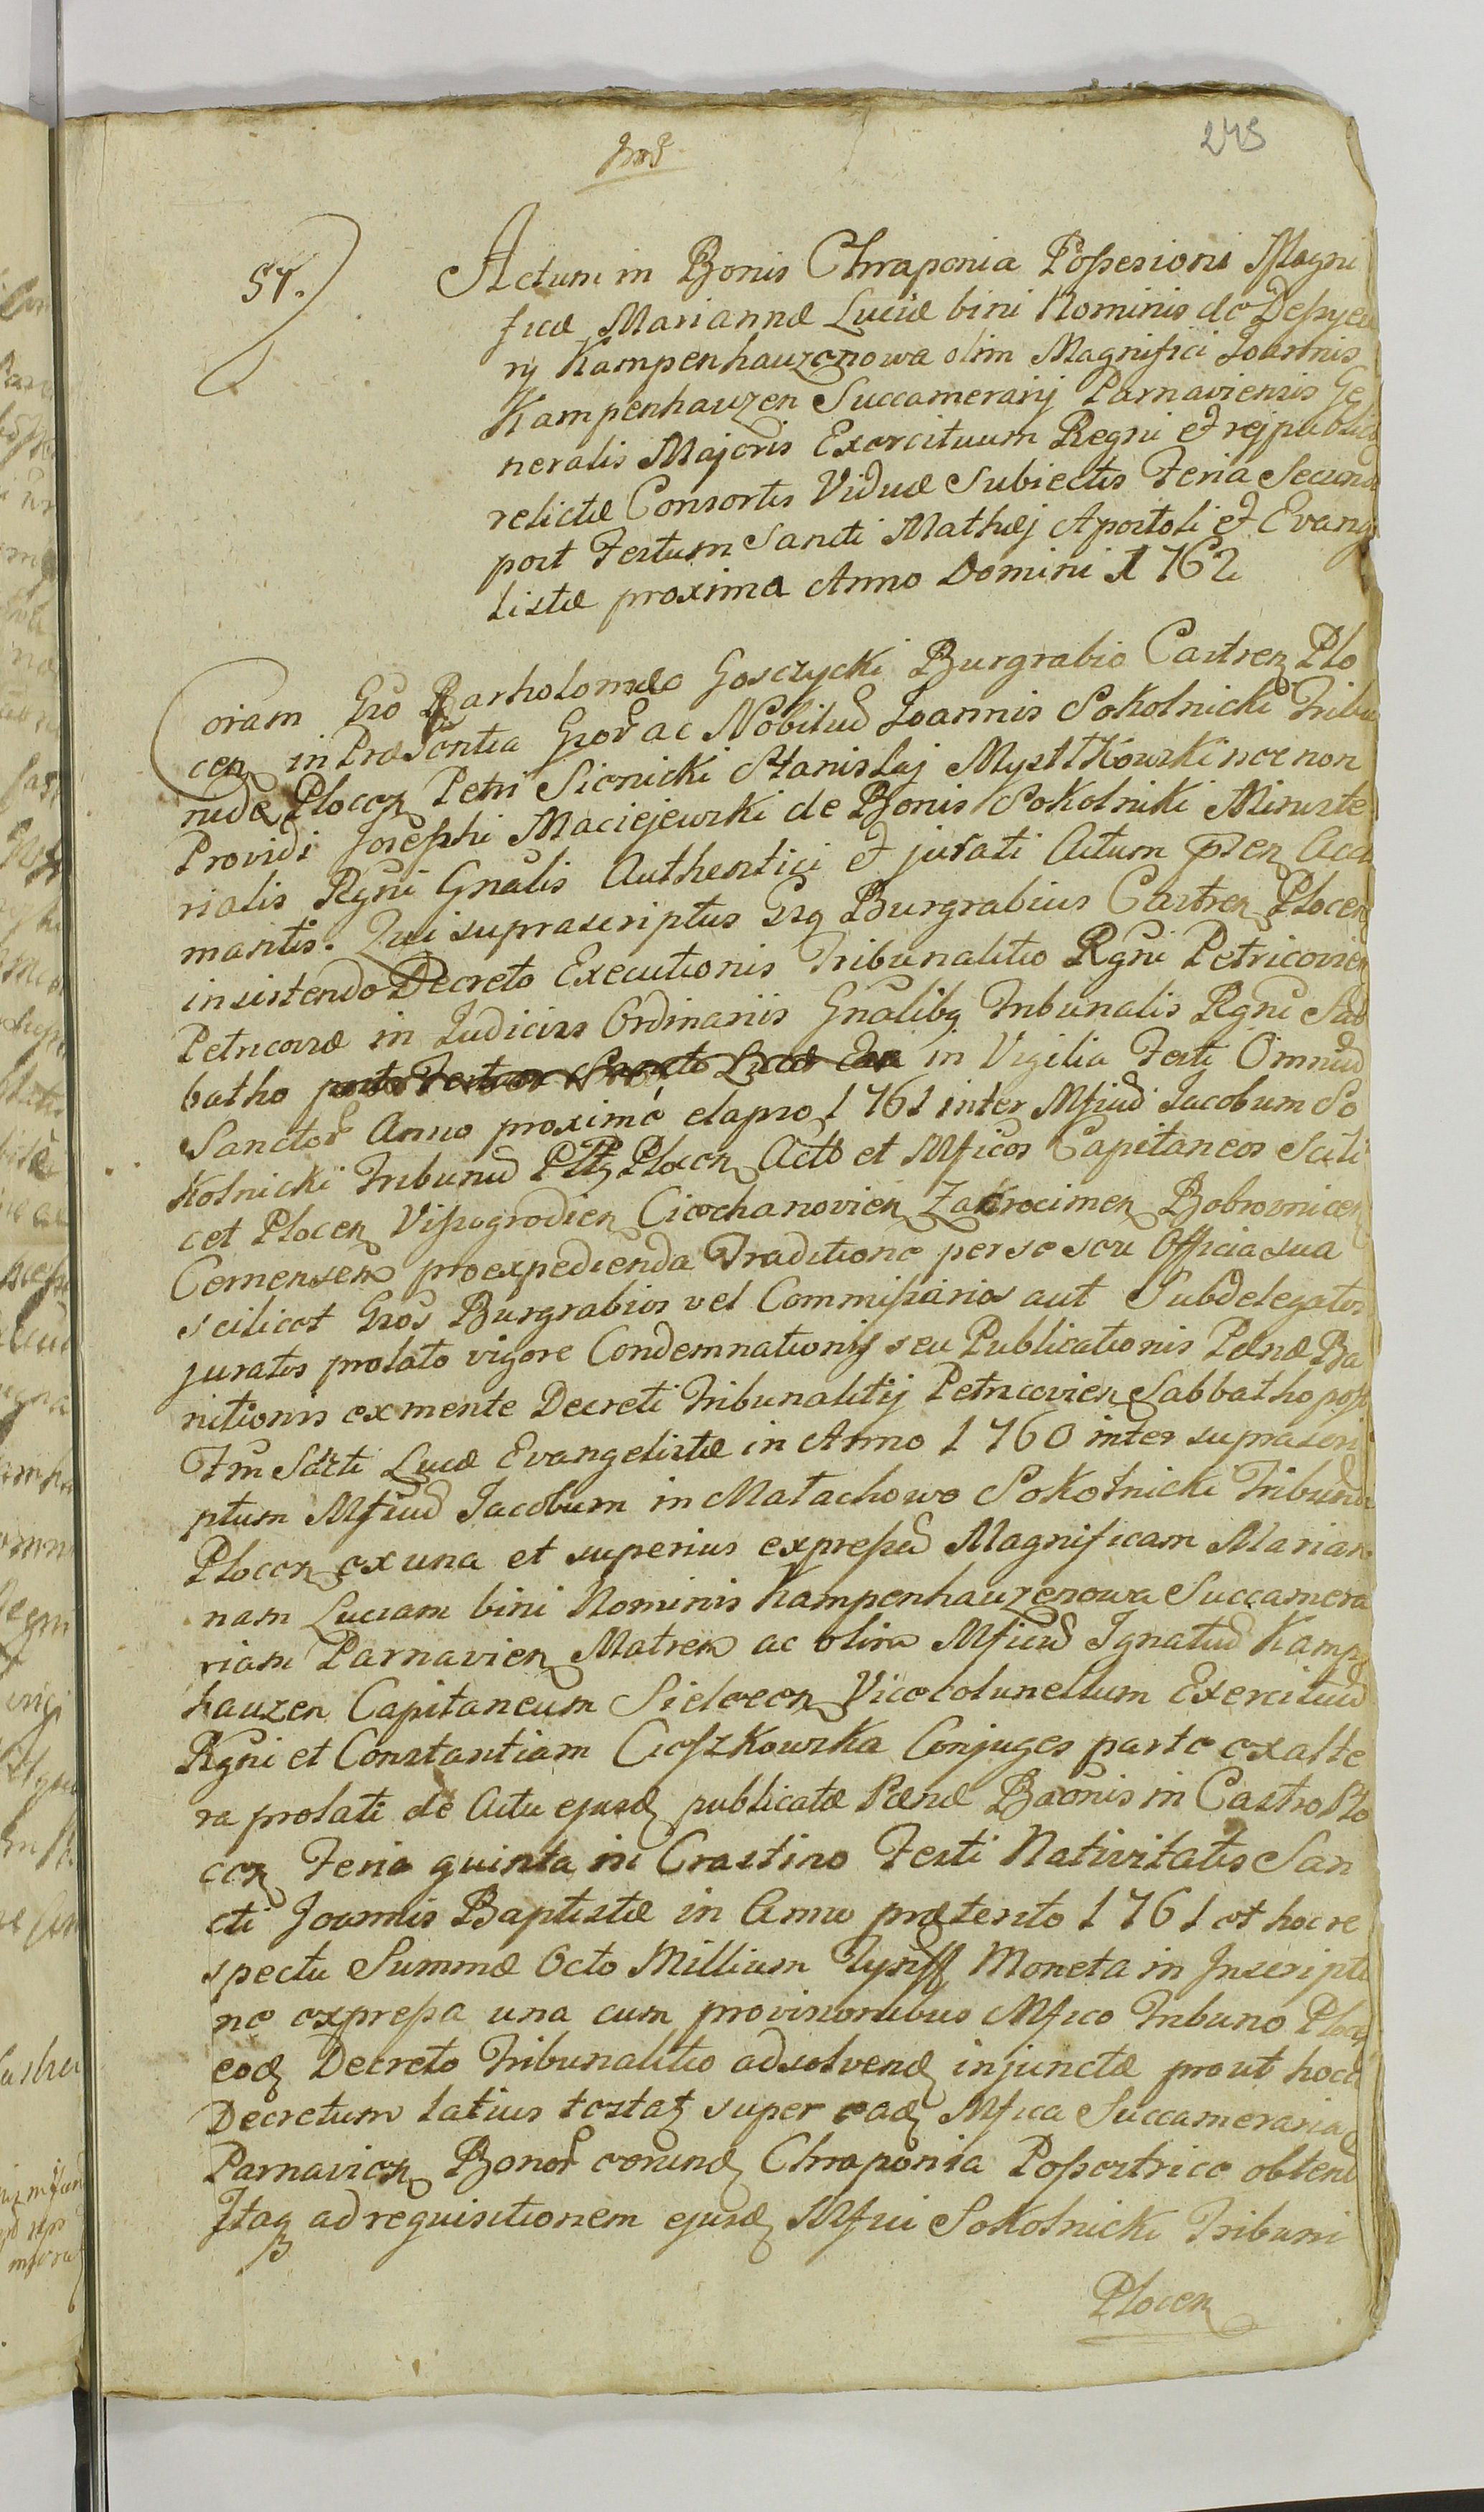 245
57.
Actum in Bonis Chraponia Possesioni Magni
ficæ Mariannæ Luciæ bini Nominis de
Kampenhauzenowa olim Magnifici Joannis
Kampenhauzen Succamerarij Parnaviensis Ge
neralis Majoris Exercituum Regni et reipublicæ
relictæ Consortis Viduæ Subiectis Feria Secunda
post Festum Sancti Mathæj Apostoli et Evange
listæ proxima Anno Domini 1762
Coram Gro Bartholomæo Gosczycki Burgrabio Castren Plo
cen in Præsentia Gror ac Nobiliu Joannis Sokolnicki Tribu
nidæ Plocen Petri Sienicki Stanislaj Mystkowski nec non
Providi Josephi Maciejewski de Bonis Sokolniki Ministe
rialis Regni Gnalis Authentici et jurati Actum pren Acce
mantis. Qui suprascriptus Grq Burgrabius Castren Plocen
insistendo Decreto Executionis Tribunalitio Rgni Petricovien
Petricoviæ in Judiciis Ordinariis Gnalibq Tribunalis Rgni Sab
batho in Vigilia Festi Omniu
Sanctor Anno proximé elapso 1761 inter Mficu Jacobum So
kolnicki Tribunu Plocen Acto et Mficos Capitaneos Scili
cet Plocen Vissogrodien Ciechanovien Zakrocimen Bobrownicen
pro expedienda Traditione per se seu Officia sua
scilicet Gros Burgrabios vel Commissarios aut Subdelegatos
juratos prolato vigore Condemnationis seu Publicationis Pænæ Ba
nitionis ex mente Decreti Tribunalitij Petricovien Sabbatho post
Ftm Scti Lucæ Evangelistæ in Anno 1760 inter suprascri
ptum Mficu Jacobum in Małachowo Sokolnicki Tribunu
Plocen ex una et superius expressa Magnificam Marian
nam Luciam bini Nominis Kampenhauzenowa Succamera
riam Parnavien Matrem ac olim Mficu Ignatiu Kampen
hauzen Capitaneum Vicecolunellum Exercituu
Rgni et Constantiam Cioszkowska Conjuges parte ex alte
ra prolati de Actu ejusd publicatæ Pænæ Baonis in Castro Plo
cen Feria quinta in Crastino Festi Nativitatis San
cti Joannis Baptistæ in Anno prætento 1761 et hoc re
spectu Summæ Octo Millium Tynff Moneta in Inscripti
ne expressa una cum provisionibus Mfico Tribuno Plocen
eod Decreto Tribunalitio adsolvend injunctæ prout hocce
Decretum latius testat super ead Mfica Succameraria
Parnavien Bonor eorund Chraponia Possestrice obtent
Itaq ad requisitionem ejusd Mfici Sokolnicki Tribuni
Plocen